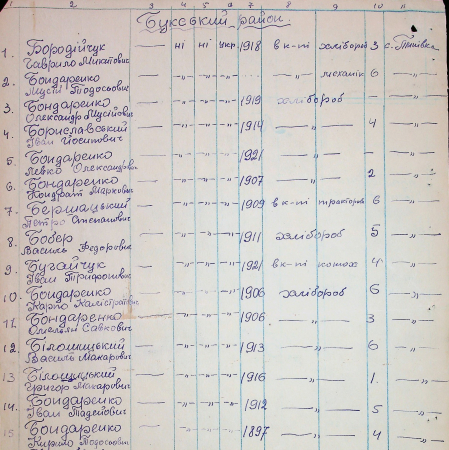 1 2 3 4 5 6 7 8 9 10 11
Букський район.
1. Бородійчук — ні ні укр. 1918 в к-пі хлібороб 3 с.
Гаврило Микитович
2. Бондаренко — " " " — " — механік 6 — " —
Тодосьович
3. Бондаренко — " " " 1919 хлібороб — — " —
Олександр
4. Бориславський — " " " 1914 — " — 4 — " —
Іван Йосипович
5. Бондаренко — " " " 1921 — " — — — " —
Левко Олександрович
6. Бондаренко — " " " 1907 — " — 2 — " —
Кіндрат Маркович
7. — " " " 1909 в к-пі тракторов 6 — " —
Петро Степанович
8. Бобер — " " " 1911 хлібороб 5 — " —
Василь Федорович
9. Бугайчук — " " " 1921 в к-пі 4 — " —
Іван Трифонович
10. Бондаренко — " " " 1906 хлібороб 6 — " —
Карпо Калістратович
11. Бондаренко — " " " 1906 — " — 3 — " —
Омелян Савкович
12. Білошицький — " " " 1913 — " — 6 — " —
Василь Макарович
13. Білошицький — " " " 1916 — " — 1. — " —
Григор Макарович
14. Бондаренко — " " " 1912 — " — 5 — " —
Іван
15. Бондаренко — " " " 1897 — " — 4 — " —
Кирило Тодосьович